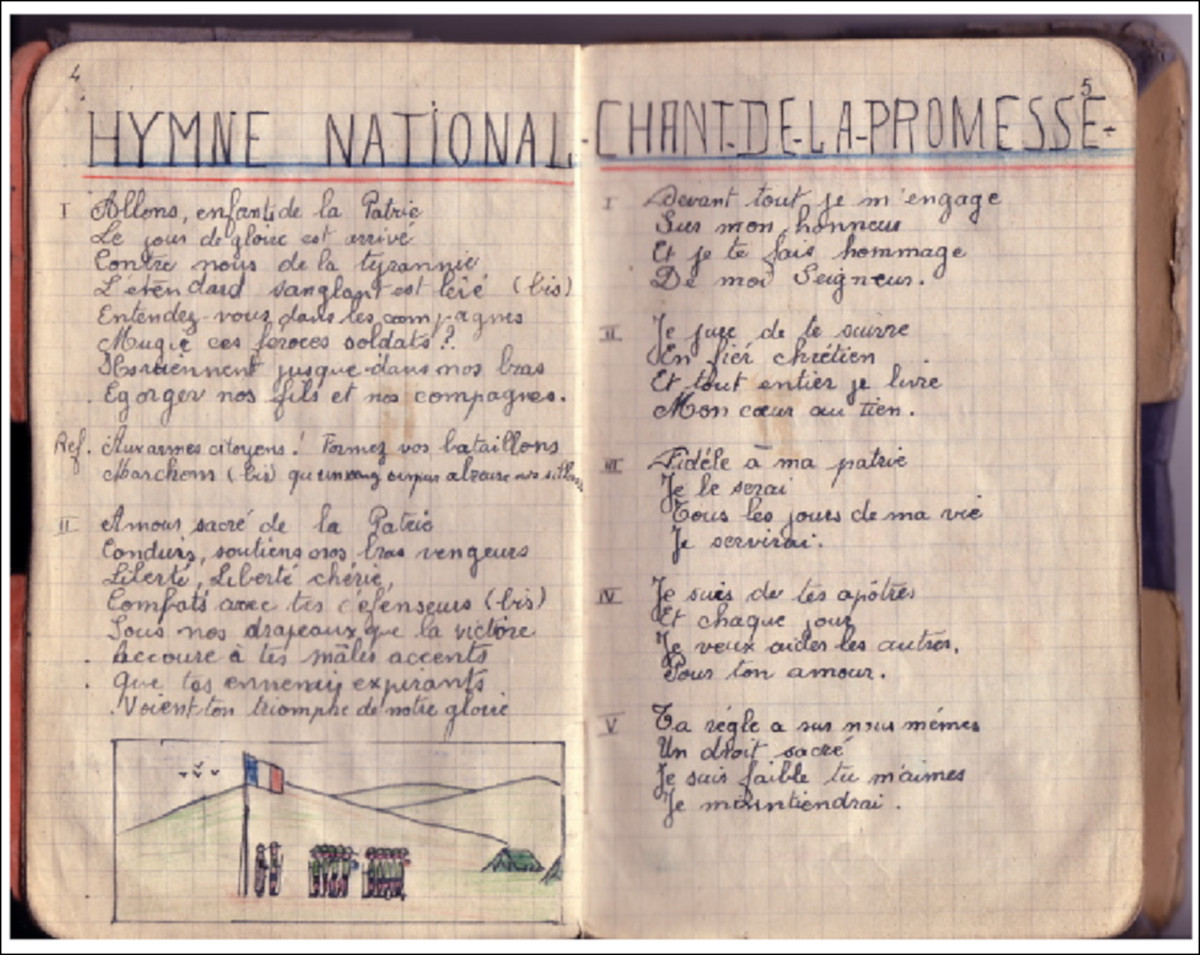 4
HYMNE NATIONAL
I Allons, enfants de la Patrie
Le jour de gloire est arrivé
Contre nous de la tyrannie
L'étendard sanglant est levé (bis)
Entendez-vous dans les compagnes
Mugir ces feroces soldats ?
jusque dans nos bras
Egorger nos fils et nos compagnes.
Ref. Aux armes citoyens ! Formez vos bataillons
Marchons (bis) qu'un sang impur abreuve nos sillons
II Amour sacré de la Patrie
Conduis, soutiens nos bras vengeurs
Liberté, Liberté chérie,
Combats avec tes défenseurs (bis)
Sous nos drapeaux, que la victoire
Accoure à tes mâles accents
Que tes ennemis expirants
Voient ton triomphe de notre gloire
5
CHANT-DE-LA-PROMESSE-
I Devant tout je m'engage
Sur mon honneur
Et je te fais hommage
De moi Seigneur.
II Je jure de te suivre
En fier chrétien
Et tout entier je livre
Mon cœur au tien.
III Fidéle à ma patrie
Je le serai
Tous les jours de ma vie
Je servirai.
IV Je suis de tes apôtres
Et chaque jour
Je veux aider les autres,
Pour ton amour.
V Ta régle a sur nous mémes
Un droit sacré
Je suis faible tu m'aimes
Je maintiendrai.